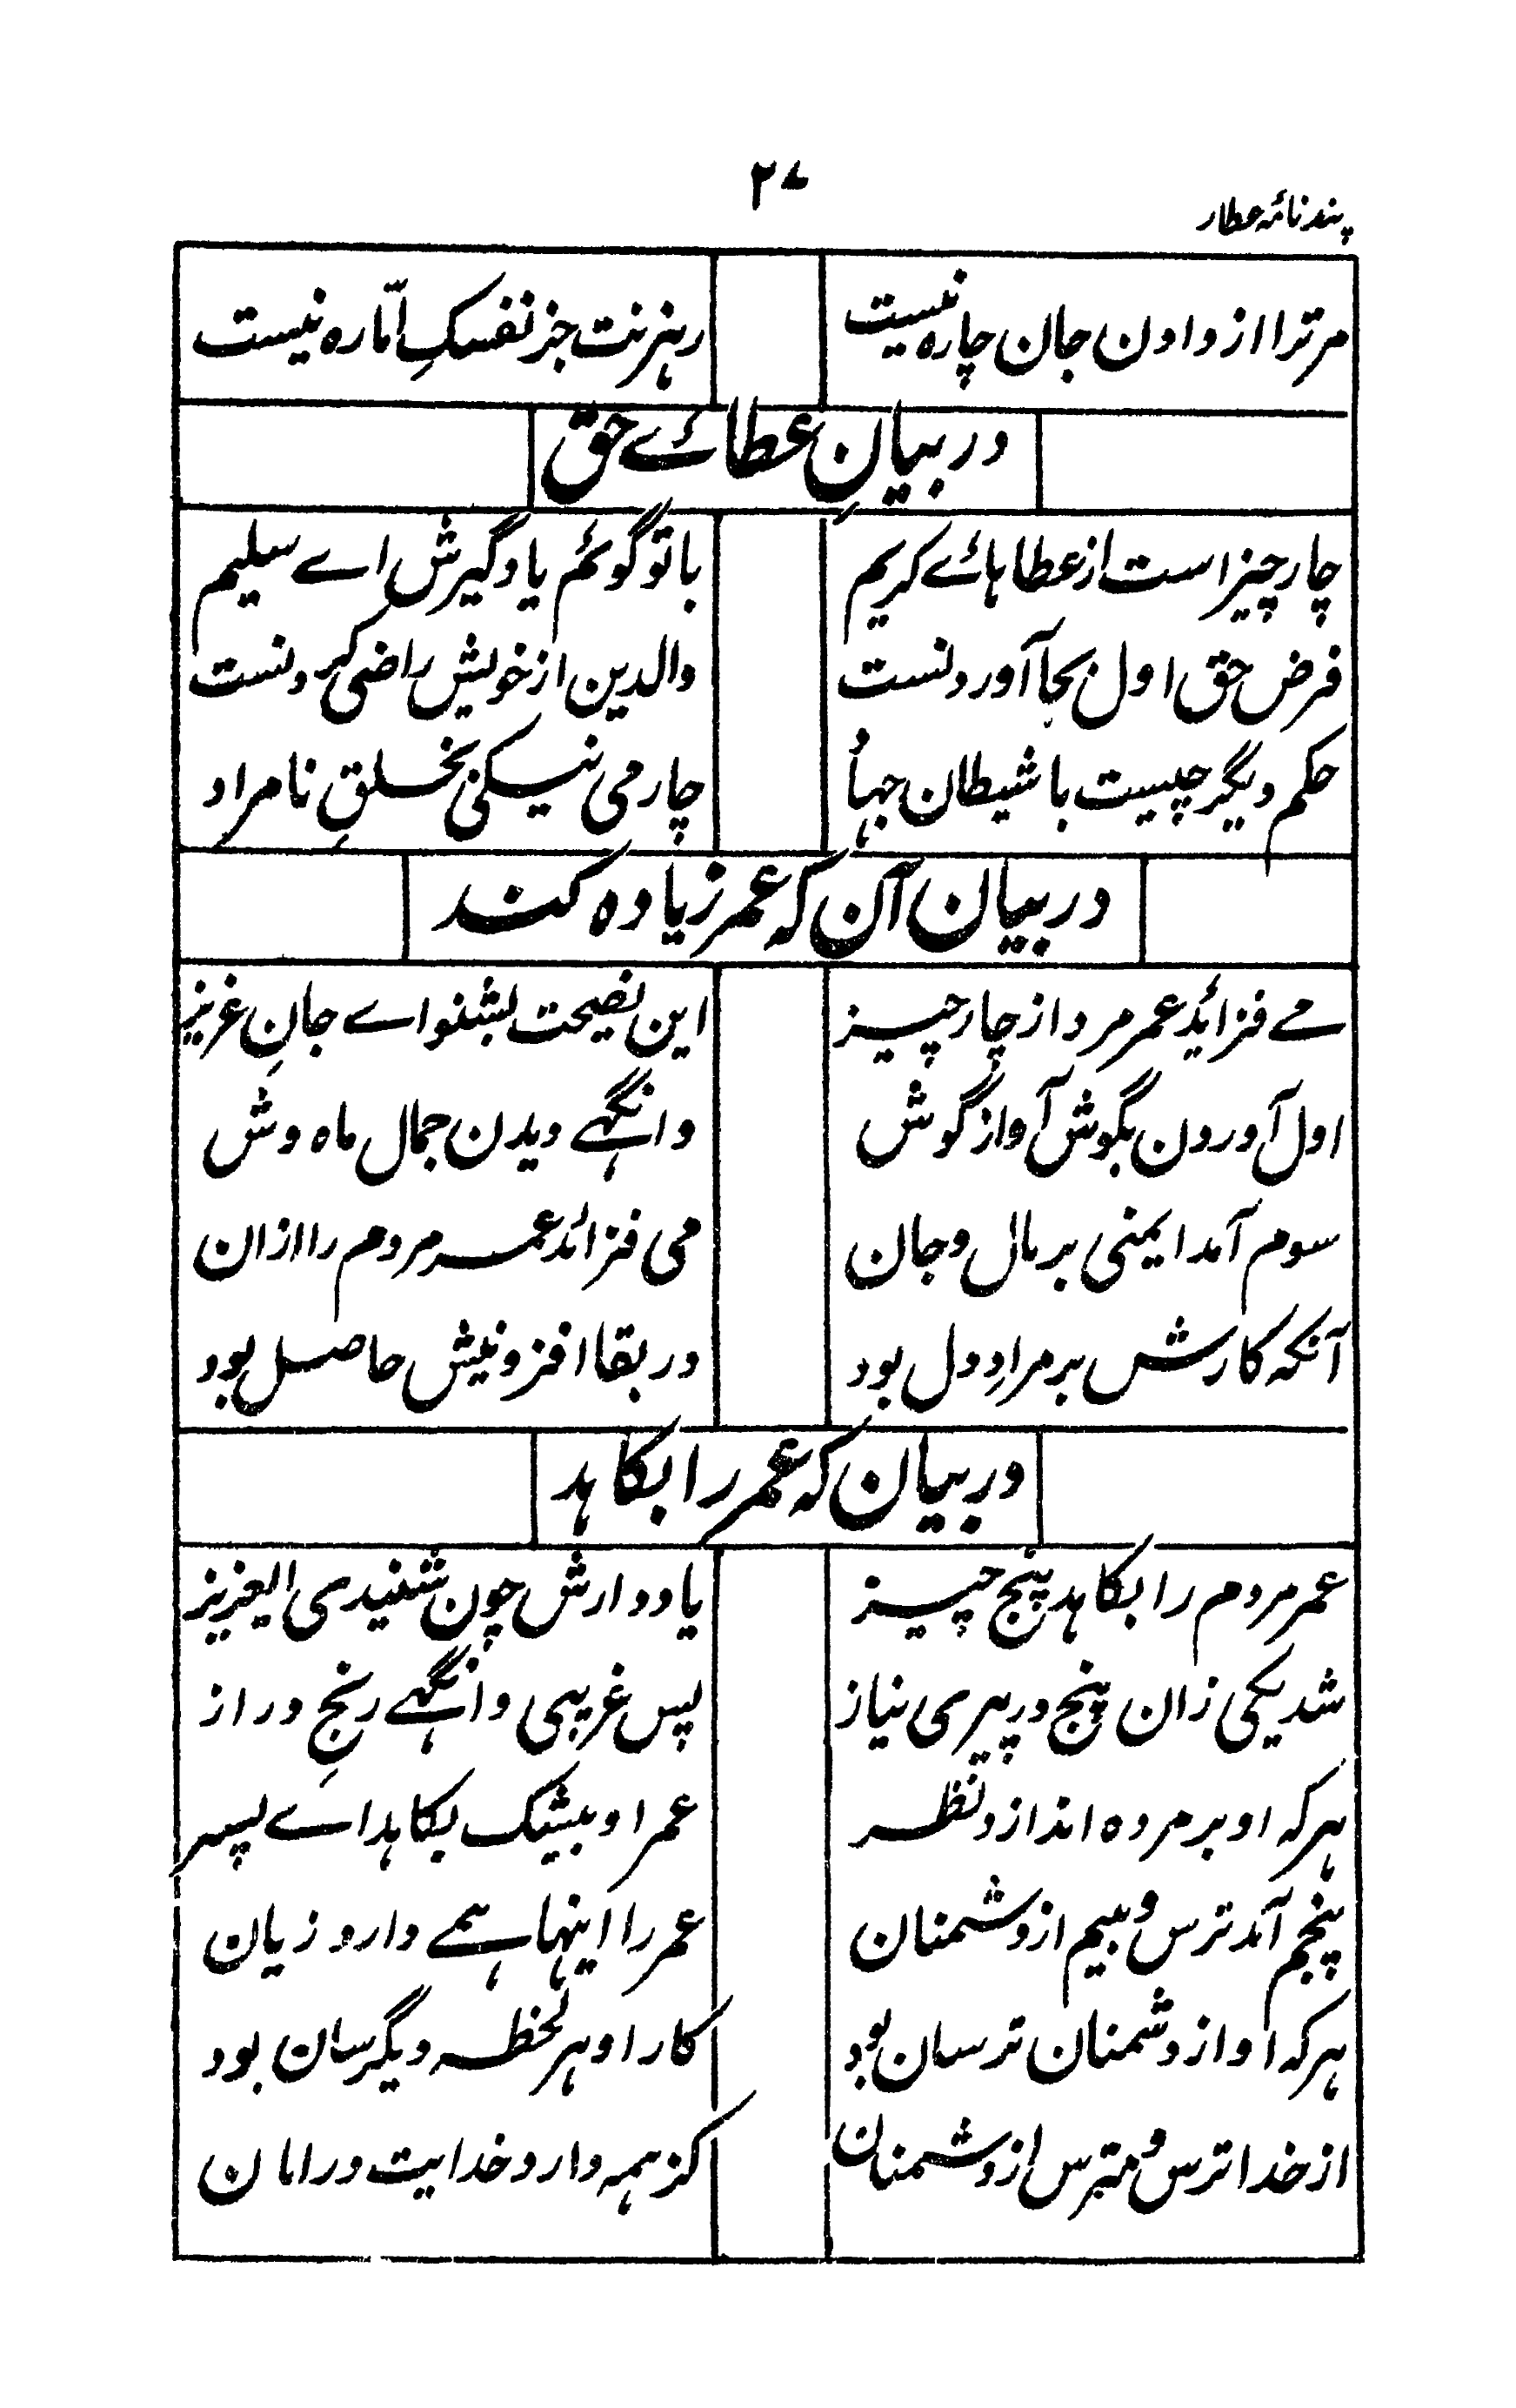 ۲۷
پندنامۂ عطار
مرترا از دادن جان چاره نیست رہزنت جز نفسکِ امّاره نیست
در بیانِ عطائے حق
چار چیز است از عطاہائے کریم با تو گوئم یاد گیرش اے سلیم
فرض حق اول بجا آوردنست والدین از خویش راضی کردنست
حکم دیگر چیست با شیطان جہاد چارمی نیکی بخلقِ نامراد
در بیان آن که عمر زیاده کند
مے فزائد عمر مرد از چار چیز این نصیحت بشنو اے جانِ عزیز
اول آوردن بگوش آواز گوش وانگہے دیدن جمال ماه وش
سوم آمد ایمنی بر مال و جان می فزائد عمر مردم را ازان
آنکه کارش بر مرادِ دل بود در بقا افزونیش حاصل بود
در بیان که عمر را بکاہد
عمر مردم را بکاہد پنج چیز یاد دارش چون شنیدی ایعزیز
شد یکی زان پنج در پیری نیاز پس غریبی وانگہے رنجِ دراز
ہر که او بر مرده اندازد نظر عمر او بیشک بکاہد اے پسر
پنجم آمد ترس و بیم از دشمنان عمر را اینہا ہمے دارد زیان
ہر که او از دشمنان ترسان بود کار او ہر لحظه دیگر سان بود
از خدا ترس و مترس از دشمنان کز ہمه دارد خدایت در امان